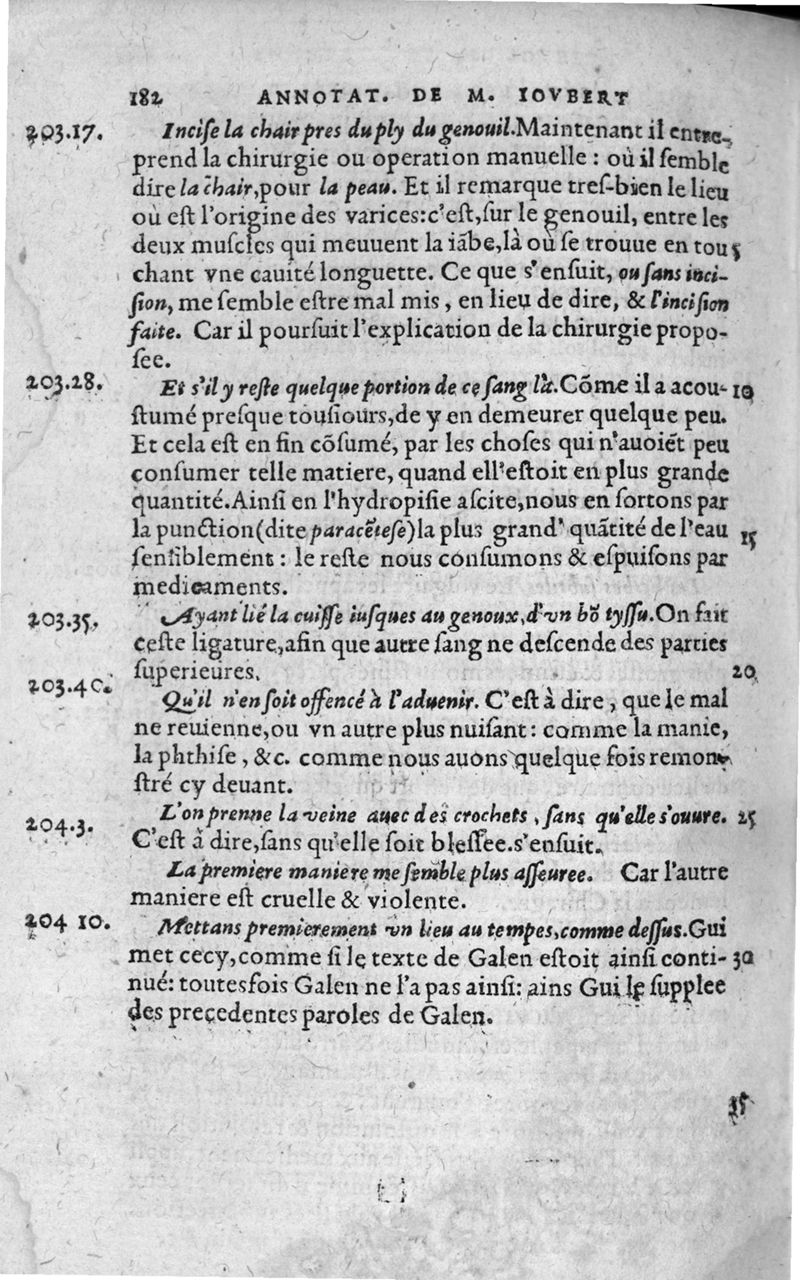 182 ANNOTAT. DE M. IOVBERT
203.17. Inciſe la chair pres du ply du genouil. Maintenant il entre-
prend la chirurgie ou operation manuelle : où il ſemble
dire la chair, pour la peau. Et il remarque treſ-bien le lieu
où eſt l'origine des varices: c'eſt, ſur le genouil, entre les
deux muſcles qui meuuent la iābe, là où ſe trouue en tou 5
chant vne cauité longuette. Ce que s'enſuit, ou ſans inci-
ſion, me ſemble eſtre mal mis, en lieu de dire, & l'inciſion
faite. Car il pourſuit l'explication de la chirurgie propo-
ſee.
203.28. Et s'il y reſte quelque portion de ce ſang là. Cōme il a acou- 10
ſtumé preſque touſiours, de y en demeurer quelque peu.
Et cela eſt en fin cōſumé, par les choſes qui n'auoiēt peu
conſumer telle matiere, quand ell'eſtoit en plus grande
quantité. Ainſi en l'hydropiſie aſcite, nous en ſortons par
la punction (dite paracēteſe) la plus grand' quātité de l'eau 15
ſenſiblement : le reſte nous conſumons & eſpuiſons par
medicaments.
203.35. Ayant lié la cuiſſe iuſques au genoux, d'vn bō tyſſu. On fait
ceſte ligature, afin que autre ſang ne deſcende des parties
ſuperieures. 20
203.40. Qu'il n'en ſoit offencé à l'aduenir. C'eſt à dire, que le mal
ne reuienne, ou vn autre plus nuiſant : comme la manie,
la phthiſe, &c. comme nous auons quelque fois remon-
ſtré cy deuant.
204.3. L'on prenne la veine auec des crochets, ſans qu'elle s'ouure. 25
C'eſt à dire, ſans qu'elle ſoit bleſſee. s'enſuit.
La premiere maniere me ſemble plus aſſeuree. Car l'autre
maniere eſt cruelle & violente.
204 10. Mettans premierement vn lieu au tempes, comme deſſus. Gui
met cecy, comme ſi le texte de Galen eſtoit ainſi conti- 30
nué: toutesfois Galen ne l'a pas ainſi: ains Gui le ſupplee
des precedentes paroles de Galen.
35